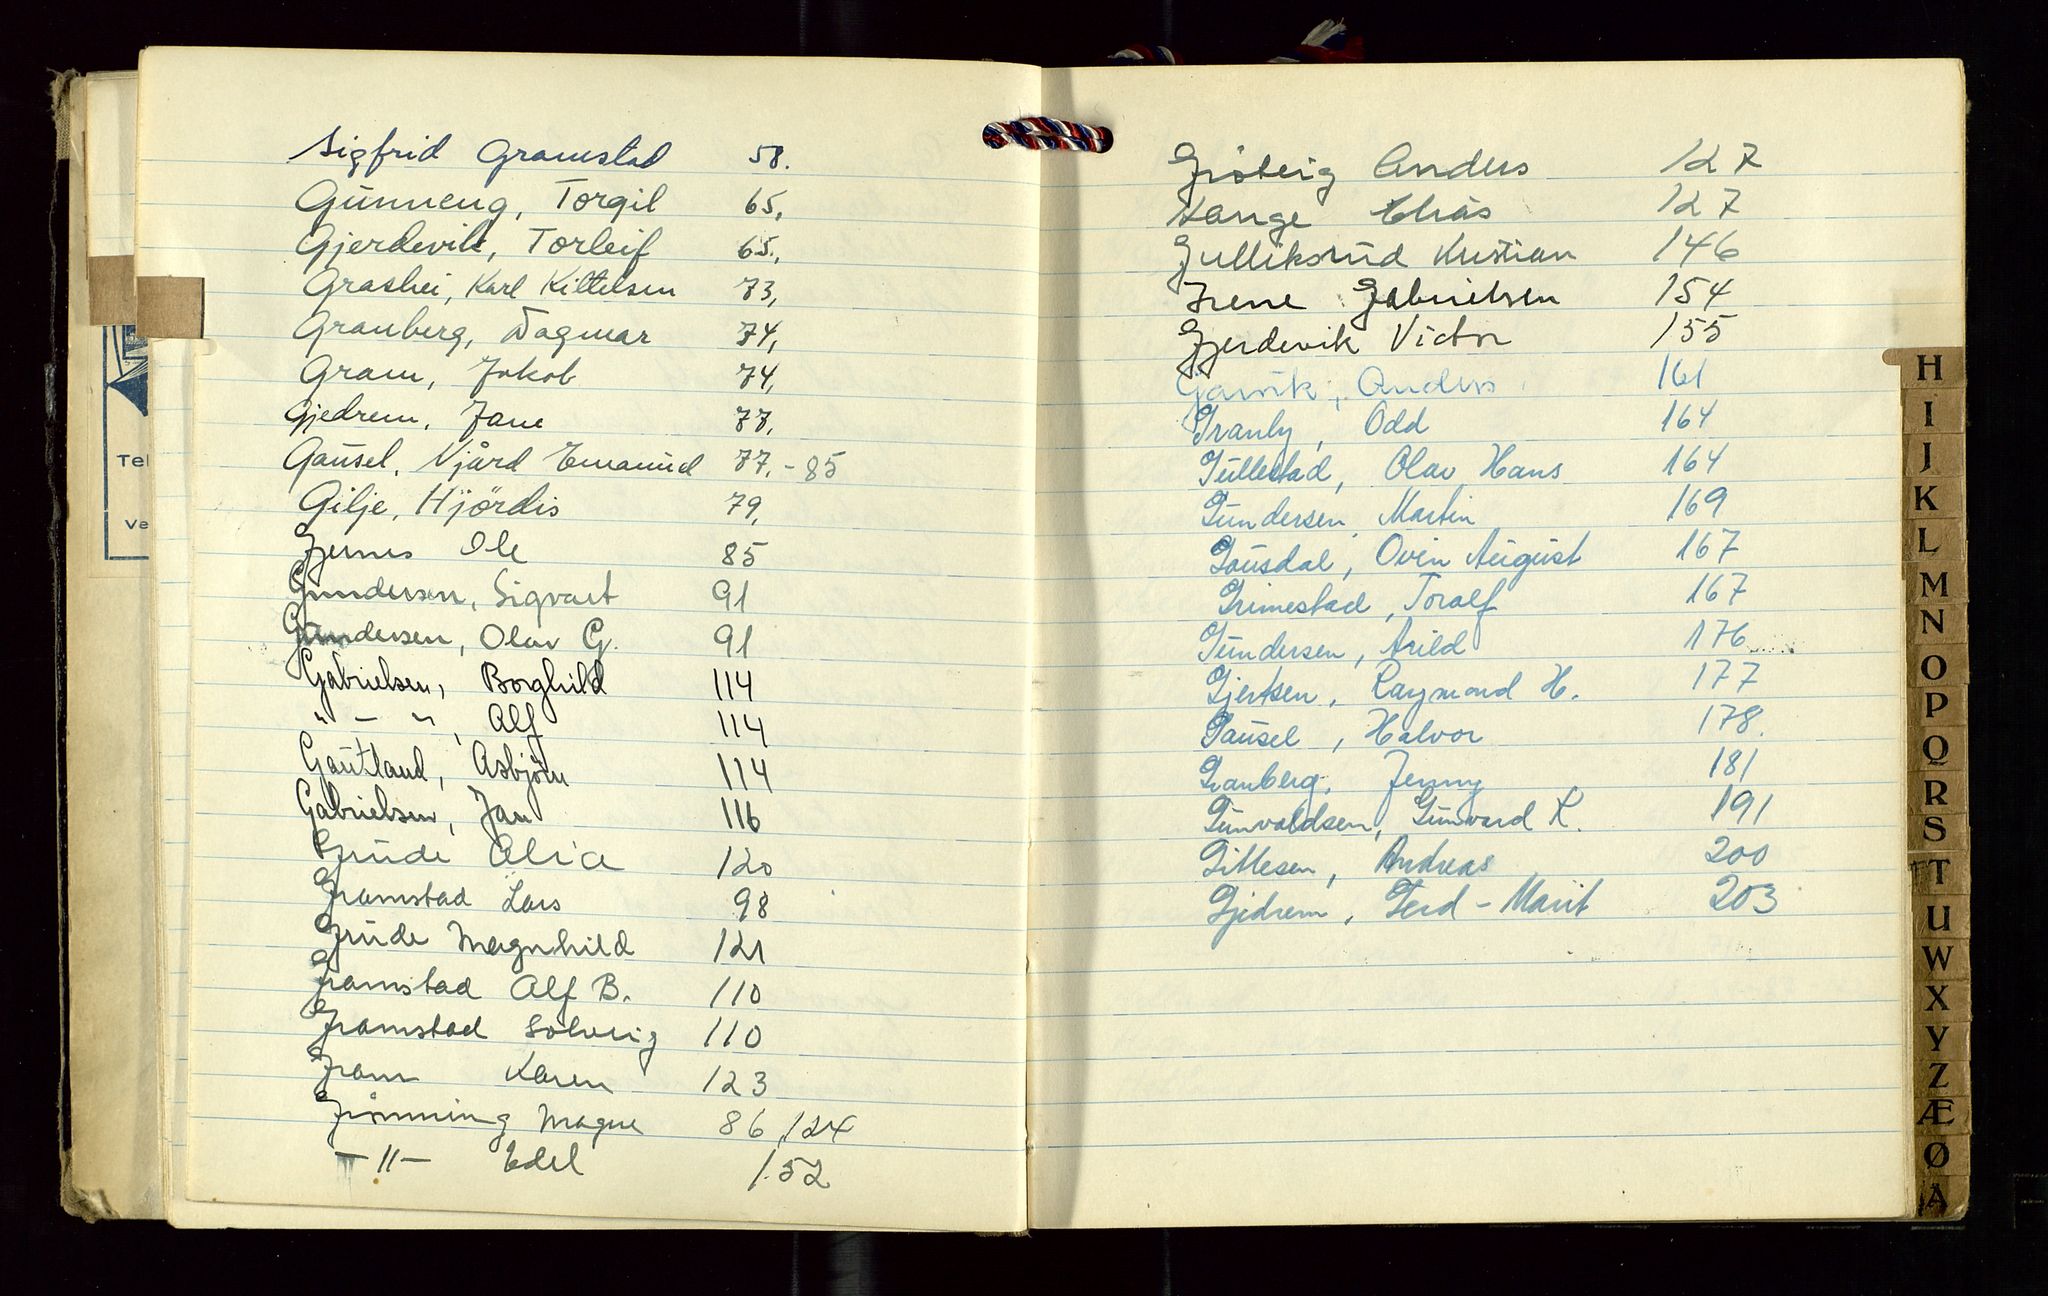 Sigfrid Gramstad 58.
Gunneng, Torgil 65,
Gjerdevik, Torleif 65,
Grashei, Karl Kittelsen 73,
Granberg, Dagmar 74,
Gram, Jakob 74,
Gjedrem, Jane 77,
Gausel, Njård Emanuel 77, - 85
Gilje, Hjördis 79,
Ole 85
Gundersen, Sigvart 91
Gundersen, Olav G. 91
Gabrielsen, Borghild 114
" - ", Alf 114
Gautland, Asbjörn 114
Gabrielsen, Jan 116
Grude Alice 120
Gramstad Lars 98
Grude Magnhild 121
Gramstad Alf B. 110
Gramstad Solveig 110
Gram Karen 123
Grönning Magne 86/124
-"- Edel 152
Anders 127
Lange 127
Gulliksrud Kristian 146
Irene Gabrielsen 154
Gjerdevik Victor 155
Garvik, Anders 161
Granly, Odd 164
Gullestad, Olav Hans 164
Gundersen, Martin 169
Gausdal, Ovin August 167
Grimestad, Toralf 167
Gundersen, Arild 176
Gjertsen, Raymond H. 177
Gausel, Halvor 178.
Granberg, Jenny 181
Gunvaldsen, Gunvard K. 191
Gittesen, Andreas 200
Gjedrem, Gerd-Marit 203
Tel
Ve
H
I
J
K
L
M
N
O
P
Q
R
S
T
U
W
X
Y
Z
Æ
Ø
A